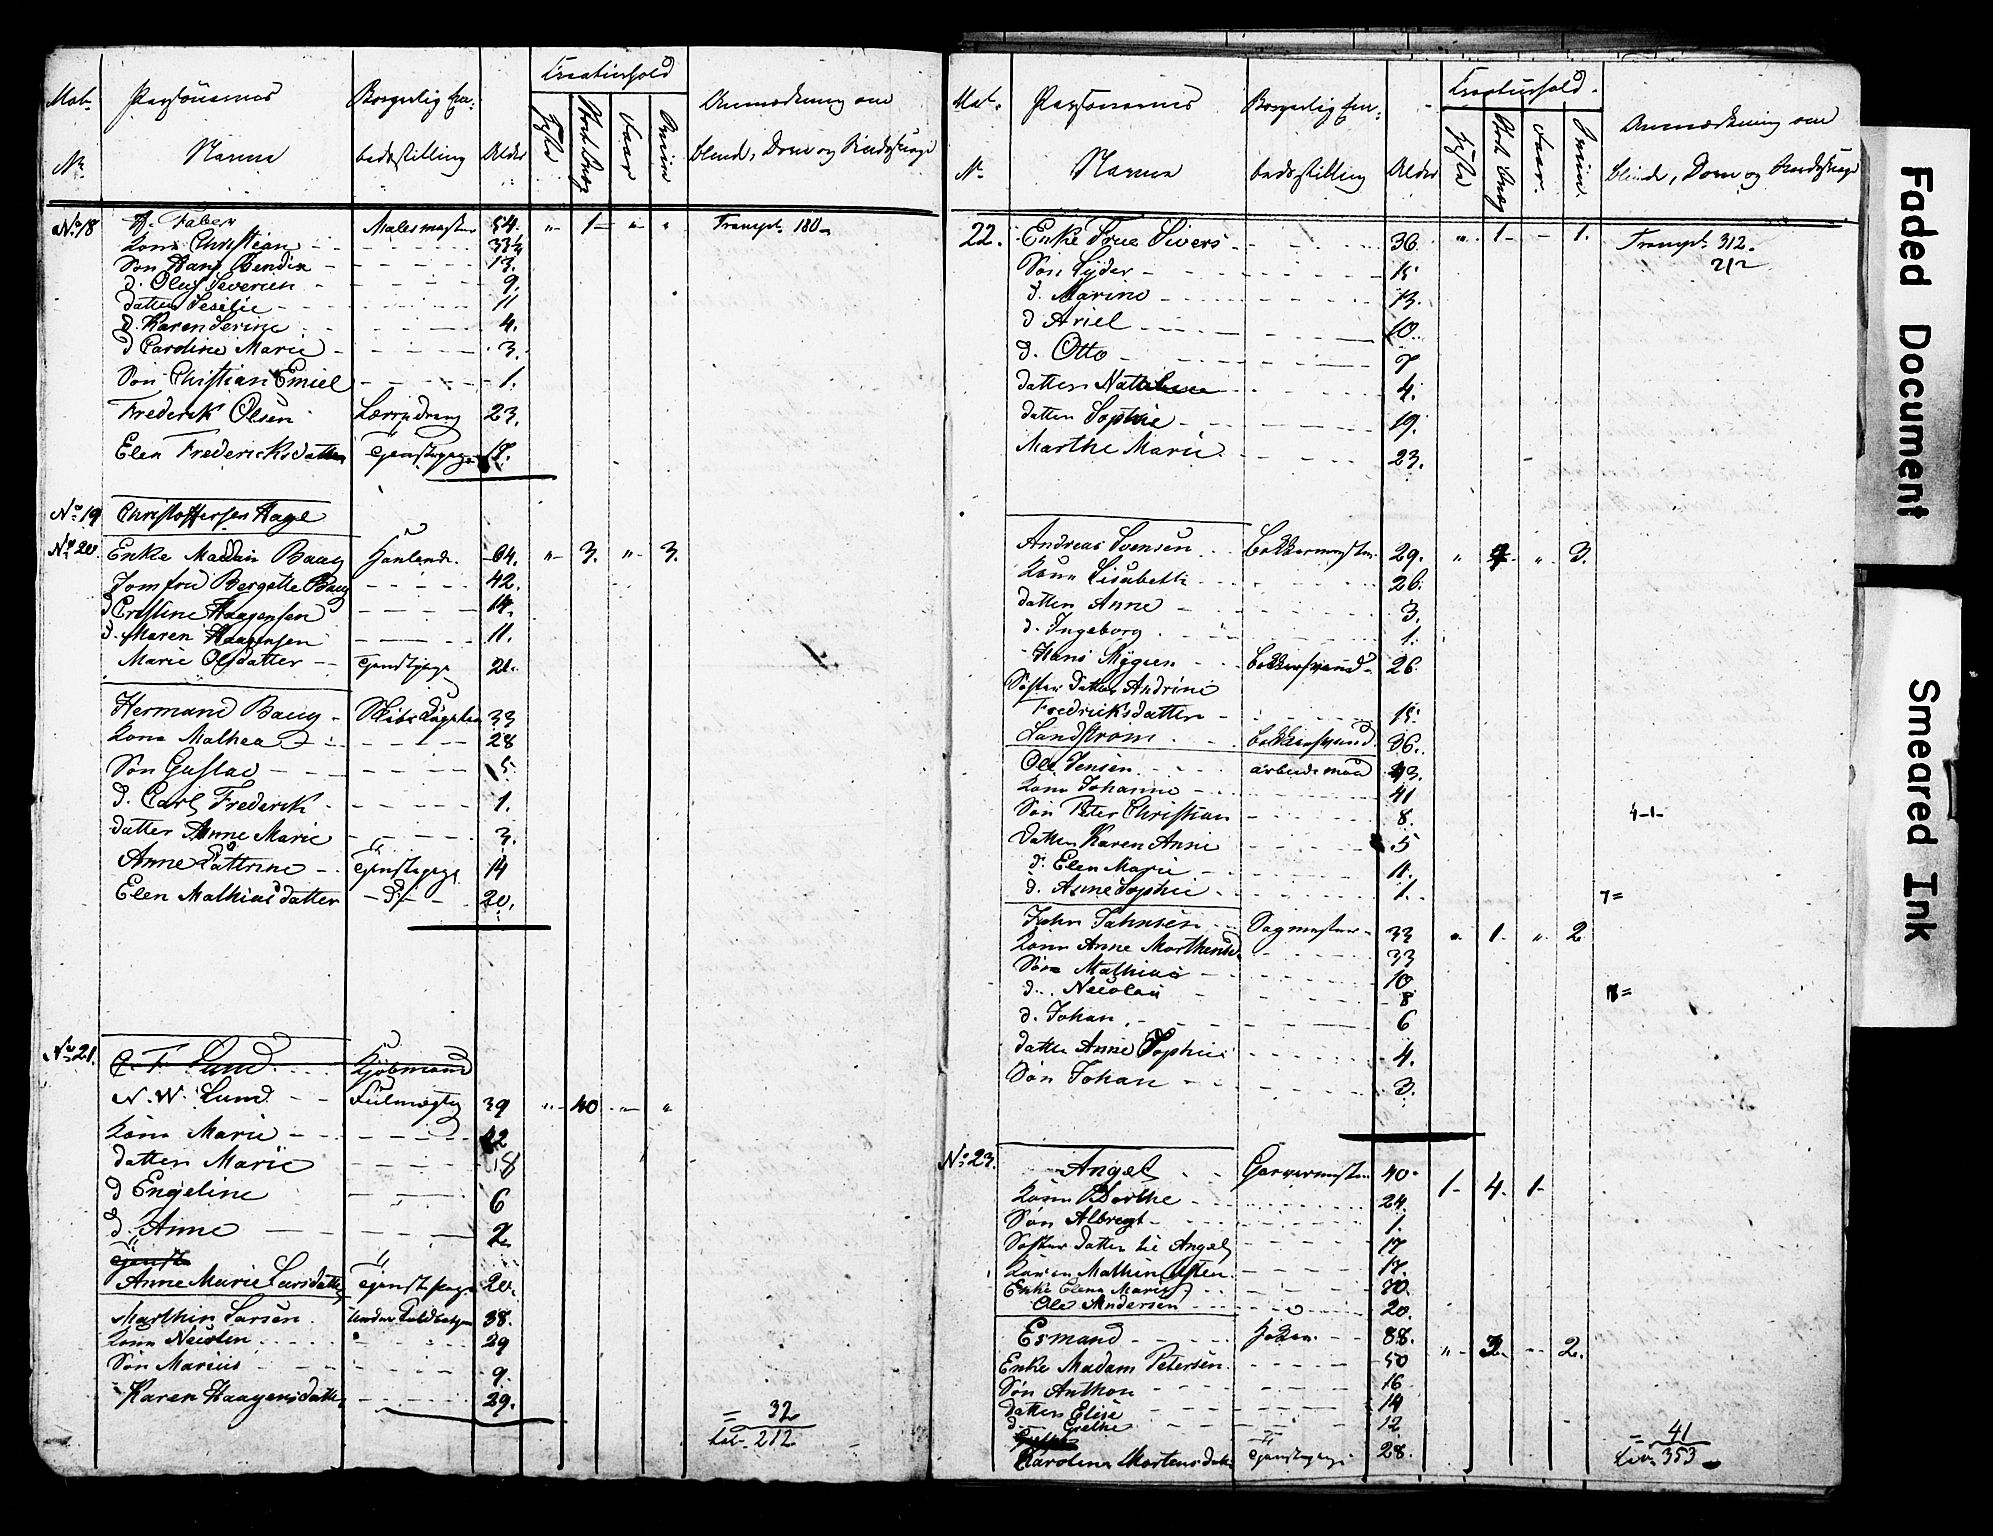 Mat.
No
Personernes
Navne
Borgerlig Em-
bedsstilling
Alder
Creaturhold
Heste
Stort Qvæg
Faar
Sviin
Anmærkning om
blinde, Døve og
No 18 H. Faber Malermester 54. " 1 " " Transpt. 180
Kone Christian
Søn Hans Bendix 13.
d. Oluf Severien 9.
datter Sesilie 11
d. Karen Serine 4.
d Caroline Marie 3.
Søn Christian Emiel 1.
Frederik Olsen Lærrydreng 23.
Elen Fredericksdatter Tjenstepige
No 19 Christoffersen Hage
No 20 Enke Madam Baug 64. " 3. " 3.
Jomfru Bergette Baug 42.
d Cristine Haagensen 14.
d. Maren Haagensen 11.
Marie Olsdatter Tjenstepige 21.
Hermand Baug 33
Kone Mathea 28
Søn Gustav 5
d. Carl Frederik 1.
datter Anne Marie 3.
Anne Cattrine Tjenstepige 14
Elen Mathiasdatter d 20.
No 21. C. F. Lund Kjøbmand
N. W. Lund Fulmægtig 39 " 40 " "
Kone Marie
datter Marie 8
d Engeline 6
d. Anne 2
Tjenst
Anne Marie Larsdatter Tjenstepige 20.
Marthin Larsen Under Toldbetjent 38.
Kone Nicolin 29
Søn Marius 9.
Karen Haagensdatter 29.
= 32
Lat. 212
Mat.
N.
Personernes
Navne
Borgerlig Em-
bedsstilling
Alder
Creaturhold.
Heste
Stort Qvæg
Faar.
Sviin.
Anmærkning om
blinde, Døve og
22. Enke Frue Sivers 36. " 1 - 1. Transpt. 312.
212
Søn Lyder 15
d. Marino 13.
d Ariel 10.
d. Otto 7
datter 4.
datter Sophie 19.
Marthe Marie 23.
Andreas Svensen Bødkermester 29. " " 3.
Kone Lisabeth 26.
datter Anne 3.
d. Ingeborg 1.
Hans Mÿgren Bødkersvend 26.
Søster datter Andrine
Fredriksdatter 15.
Landstrom Bødkersvend 36.
Ole Jensen arbeidsmand 43.
Kone Johanne 41
Søn Peter Christian 8. 4-1-
datter Karen Anne 5
d. Elen Marie 11.
d. Anne Sophie 1. 7=
John Jahnsen Sagmester 33 " 1. " 2
Kone Anne 33
Søn Mathias 10
d. Nicolai 8
d. Johan 6
datter Anne Sophie 4.
Søn Johan 3.
No 23. Angel Garvermester 40. 1- 4. 1-
Kone Berthe 24.
Søn Albregt 1.
Søster datter til Angel 17
17.
Enke Elena Marie 70.
Ole Andersen 20.
Esmand 88. " 2.
Enke Madam Petersen 50
Søn Anthon 16
datter Elise 14
d. Grethe 12
Carolina Mortensdatter Tjenstepige 28.
= 41
353
Faded Document
Smeared Ink